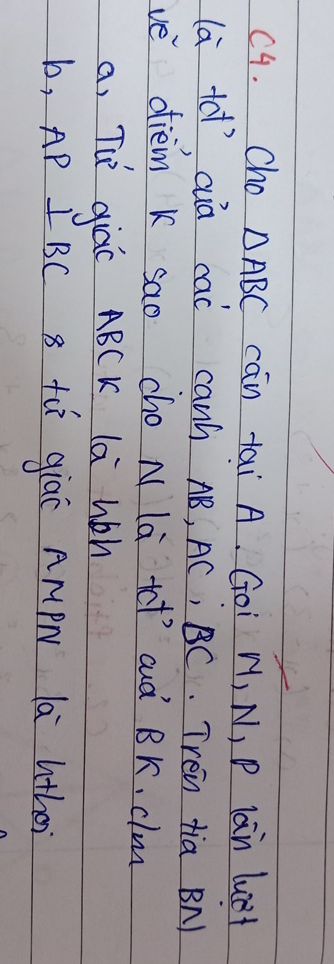 C4. Cho ΔABC cân tại A. Gọi M, N, P lần lượt
là tđ' của các cạnh AB, AC, BC. Trên tia BN
vẽ điểm K sao cho N là tđ' của BK. c/m
a, Tứ giác ABCK là hbh
b, AP ⊥ BC & tứ giác AMPN là hthoi